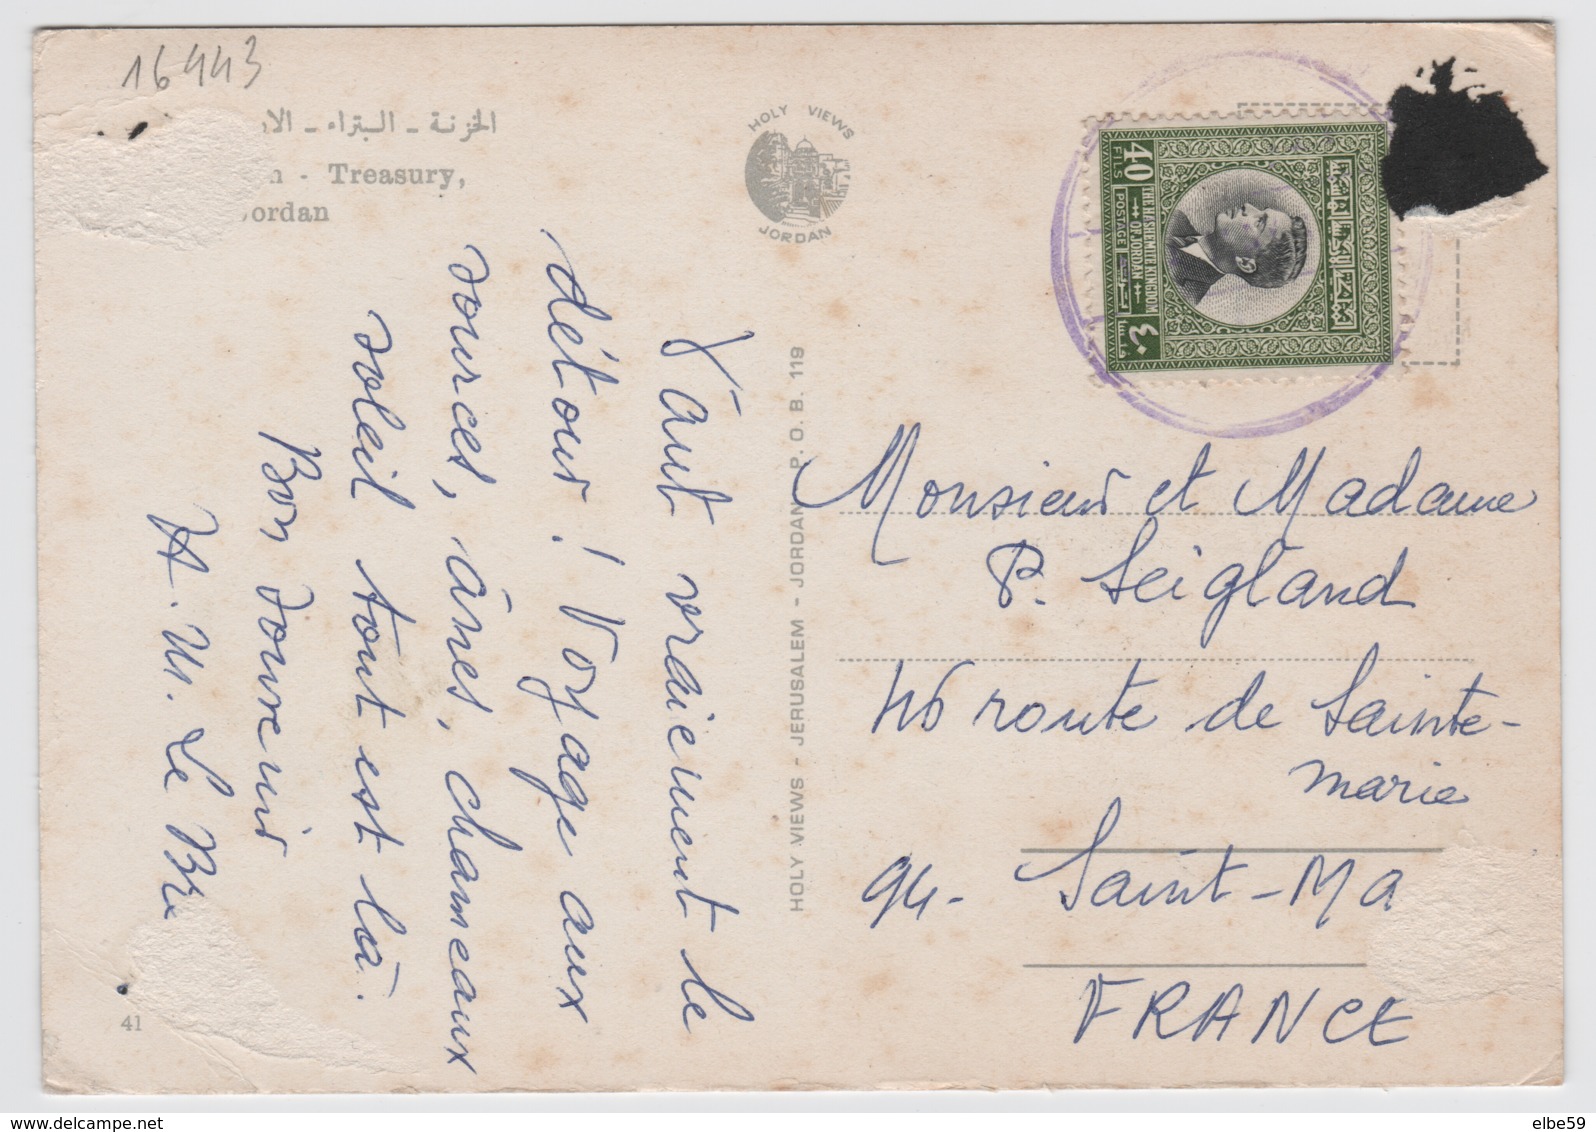 16443
الخزنة - البتراء - الا
n - Treasury,
Jordan
HOLY VIEWS
JORDAN
Vaut vraiement le
détour ! Voyage aux
sources, ânes, chameaux
soleil tout est là.
Bon souvenir
Le Br
41
HOLY VIEWS - JERUSALEM - JORDAN P. O. B. 119
40
FILS
POSTAGE
THE HASHEMITE KINGDOM
OF JORDAN
المملكة الأردنية الهاشمية
٤٠
فلسا
Monsieur et Madame
P. Seigland
46 route de Sainte-
marie
94- Saint-Ma
FRANCE
www.delcampe.net
elbe59